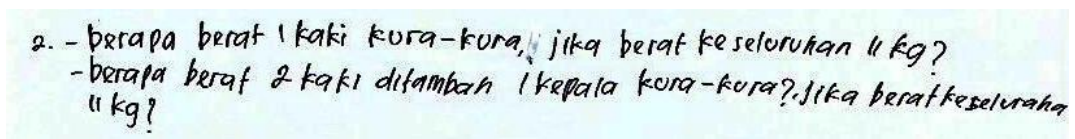 2. - berapa berat 1 kaki kura-kura, jika berat keseloruhan 11 kg?
- berapa berat 2 kaki ditambah 1 kepala kura-kura?. Jika berat keseluraha
11 kg?